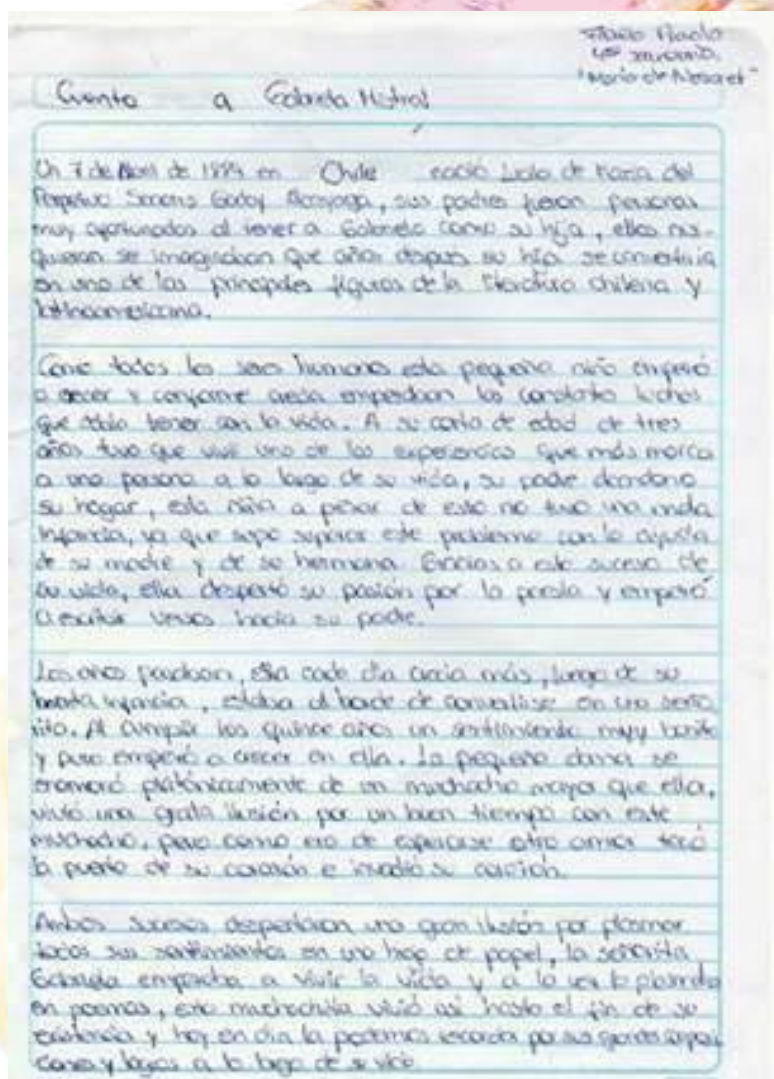 4to secundaria
"María de Nazaret"
Cuento a Gabriela Mistral
Un 7 de Abril de 1889 en Chile nació Lucila de María del
Perpetuo Socorro Godoy Alcayaga, sus padres fueron personas
muy afortunados al tener a Gabriela como su hija, ellos ni
quieran se imaginaban que años después su hija se convertiría
en una de las principales figuras de la literatura chilena y
latinoamericana.
Como todos los seres humanos esta pequeña niña empezó
a crecer y conforme crecía empezaban las constantes luchas
que debía tener con la vida. A su corta de edad de tres
años tuvo que vivir una de las experiencias que más marca
a una persona a lo largo de su vida, su padre abandonó
su hogar, esta niña a pesar de esto no tuvo una mala
infancia, ya que supo superar este problema con la ayuda
de su madre y de su hermana. Gracias a este suceso de
su vida, ella despertó su pasión por la poesía y empezó
a escribir versos hacia su padre.
Los años pasaban, ella cada día crecía más, luego de su
infancia, estaba al borde de convertirse en una seño
rita. Al cumplir los quince años un sentimiento muy bonito
y puro empezó a crecer en ella. La pequeña dama se
enamoró platónicamente de un muchacho mayor que ella,
vivió una grata ilusión por un buen tiempo con este
muchacho, pero como era de esperarse otro amor tocó
la puerta de su corazón e invadió su corazón.
Ambos sucesos despertaron una gran ilusión por plasmar
todos sus sentimientos en una hoja de papel, la señorita
Gabriela empezaba a vivir la vida y a la vez lo plasmaba
en poemas, esta muchachita vivió así hasta el fin de su
existencia y hoy en día la podemos recordar por sus grandes
y logros a lo largo de su vida